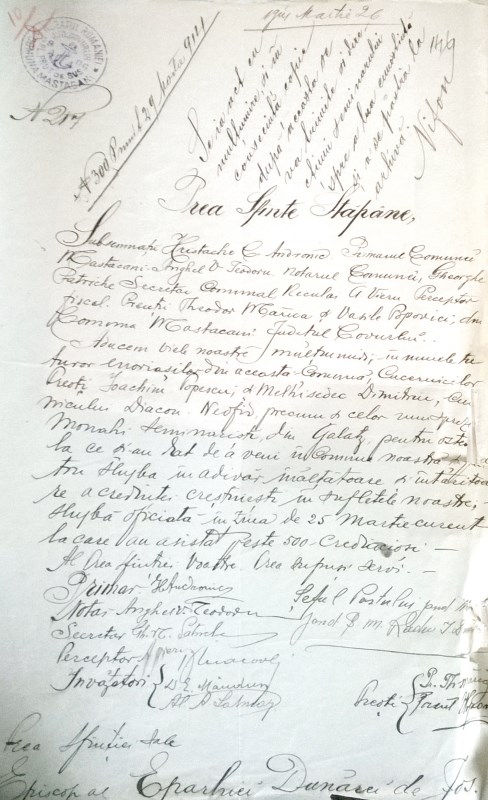 1911 Martie 26
149
N 217
N 300 Primit 29 Martie 911
Se ia act cu
mulțumire, și în
consecință copie
după aceasta se
va trimite și dire
cțiunei seminarului
spre a lua cunoștință
și a se păstra la
arhivă
Nifon
Prea Sfinte Stăpâne,
Subsemnații Hristache C Andronic Primarul Comunei
Mastacani Anghel V Teodoru notarul Comunei, Gheorghe
Patriche Secretar Comunal Neculai A Vieru Perceptor
fiscal. Preuții Theodor Marica și Vasile Popovici, din
Comuna Mastacani Județul Covurlui.
Aducem viele noastre mulțumiri, în numele tu
turor enoriașilor din această Comună Cucernicilor
Preoți Ioachim Popescu, și Melhisedec Dimitriu, Cu
viosului Diacon Neofit, precum și celor unsprezece
Monahi seminariști, din Galați, pentru oste
la ce și-au dat de a veni în Comuna noastră
slujba în adivăr înălțătoare și întăritoa
re a credinței creștinești în sufletele noastre,
slujbă oficiată în ziua de 25 Martie curent
la care au asistat peste 500 credincioși —
Ai Prea Sfinției Voastre Prea supuși servi. —
Primar HAndronic
Notar Anghel V Teodoru
Secretar Gh. N. Patriche
Perceptor
Învățători
Șeful Postului
Preoți Pr. Th. Marica
Prea Sfinției Sale
Episcop al Eparhiei Dunărei de Jos.